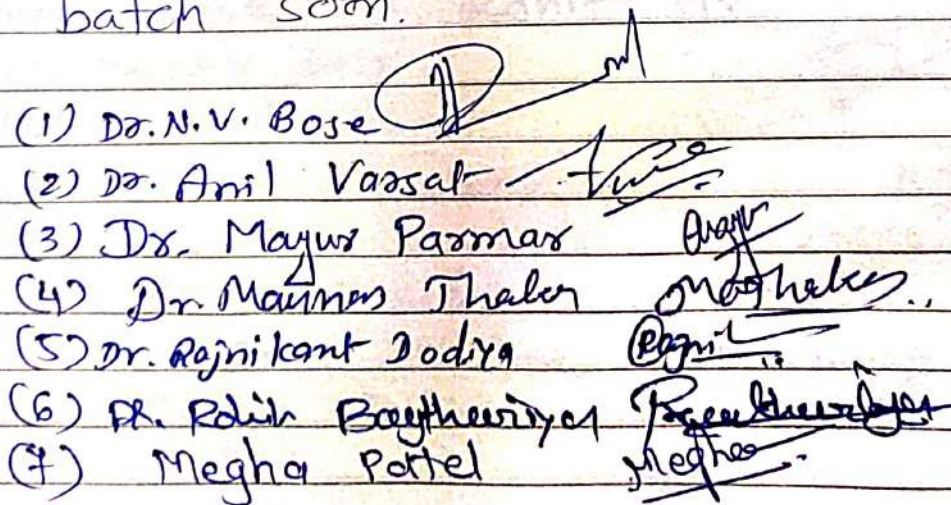 batch soon.
(1) Dr. N. V. Bose
(2) Dr. Anil Varsat
(3) Dr. Mayur Parmar
(4) Dr. Maunas Thaker MaThaker
(5) Dr. Rajnikant Dodiya Rajni
(6) DR. Rohin Baythuriya
(7) Megha Patel Megha